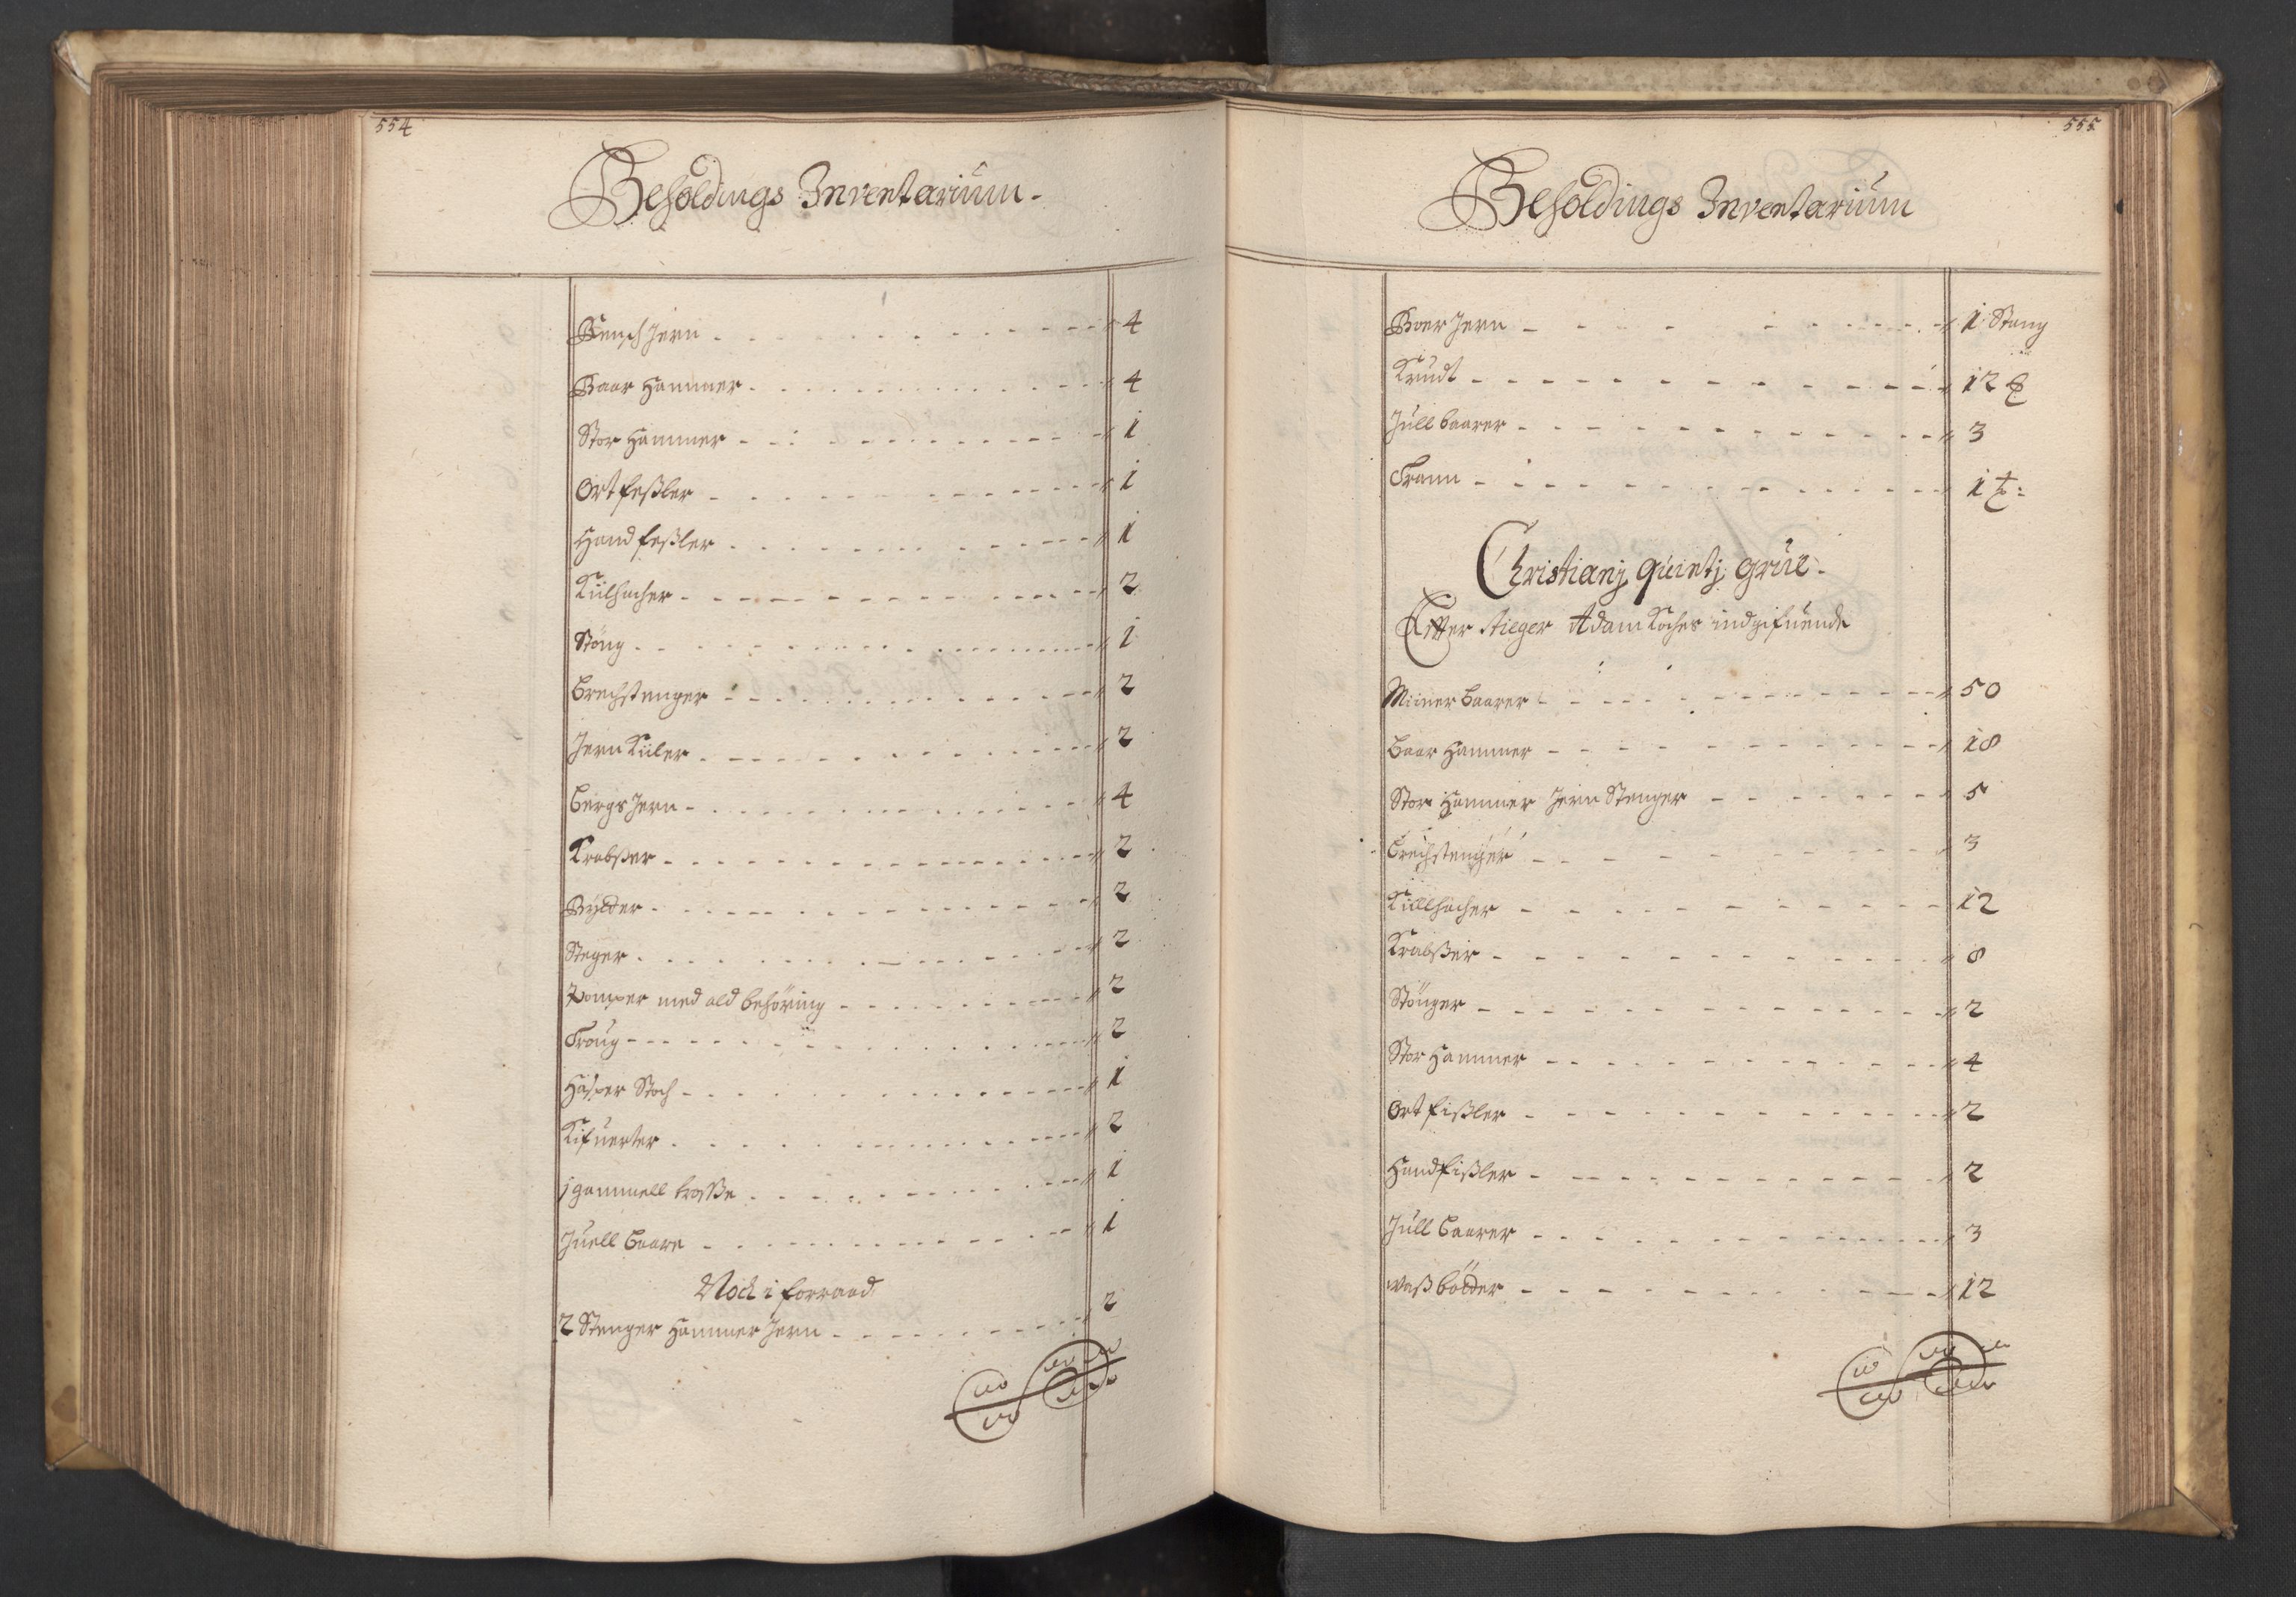 554
Beholdings Inventarium.
Bench Jern 4
Baar Hammer 4
Stor Hammer 1
Ort feßler 1
Hand feßler 1
Kiilhacher 2
Stöng 1
brechstenger 2
Jern Kiiler 2
bergs Jern 4
Krabßer 2
Bylder 2
Steger 2
Pomper med ald behöring 2
Troug 2
Hasper Stoch 1
Kifuerter 2
j gammell trosse 1
Juell baare 1
Nock i forraad
2 Stenger Hammer Jern 2
555
Beholdings Inventarium
Boer Jern 1 Stang
Krudt 12 ℔
Jull baarer 3
Trann 1
Christianj quintj grue.
Efter stieger Adam Koches indgifuende
Miiner baarer 50
baar Hammer 18
Stor Hammer Jern Stenger 5
brechstenger 3
Kiillhacher 12
Krabßer 8
Stönger 2
Stor Hammer 4
Ort fißler 2
Handfißler 2
Jull baarer 3
waß bötter 12